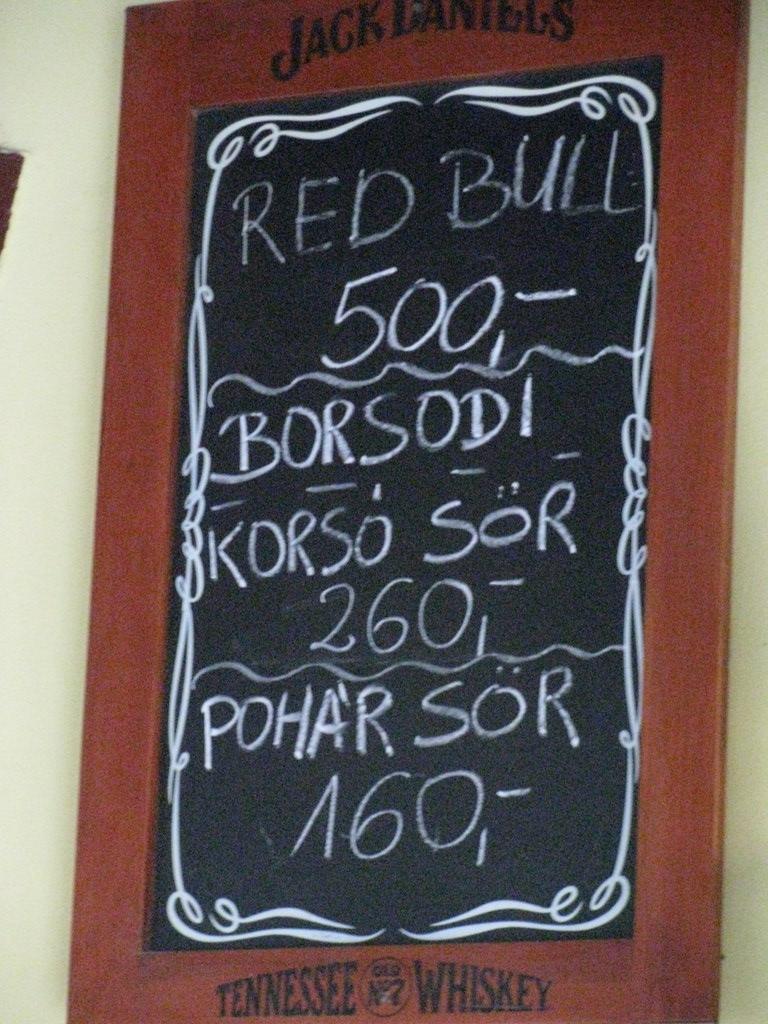 JACK DANIEL'S
RED BULL
500,-
BORSODI
KORSÓ SÖR
260,-
POHÁR SÖR
160,-
TENNESSEE OLD Nº7 WHISKEY